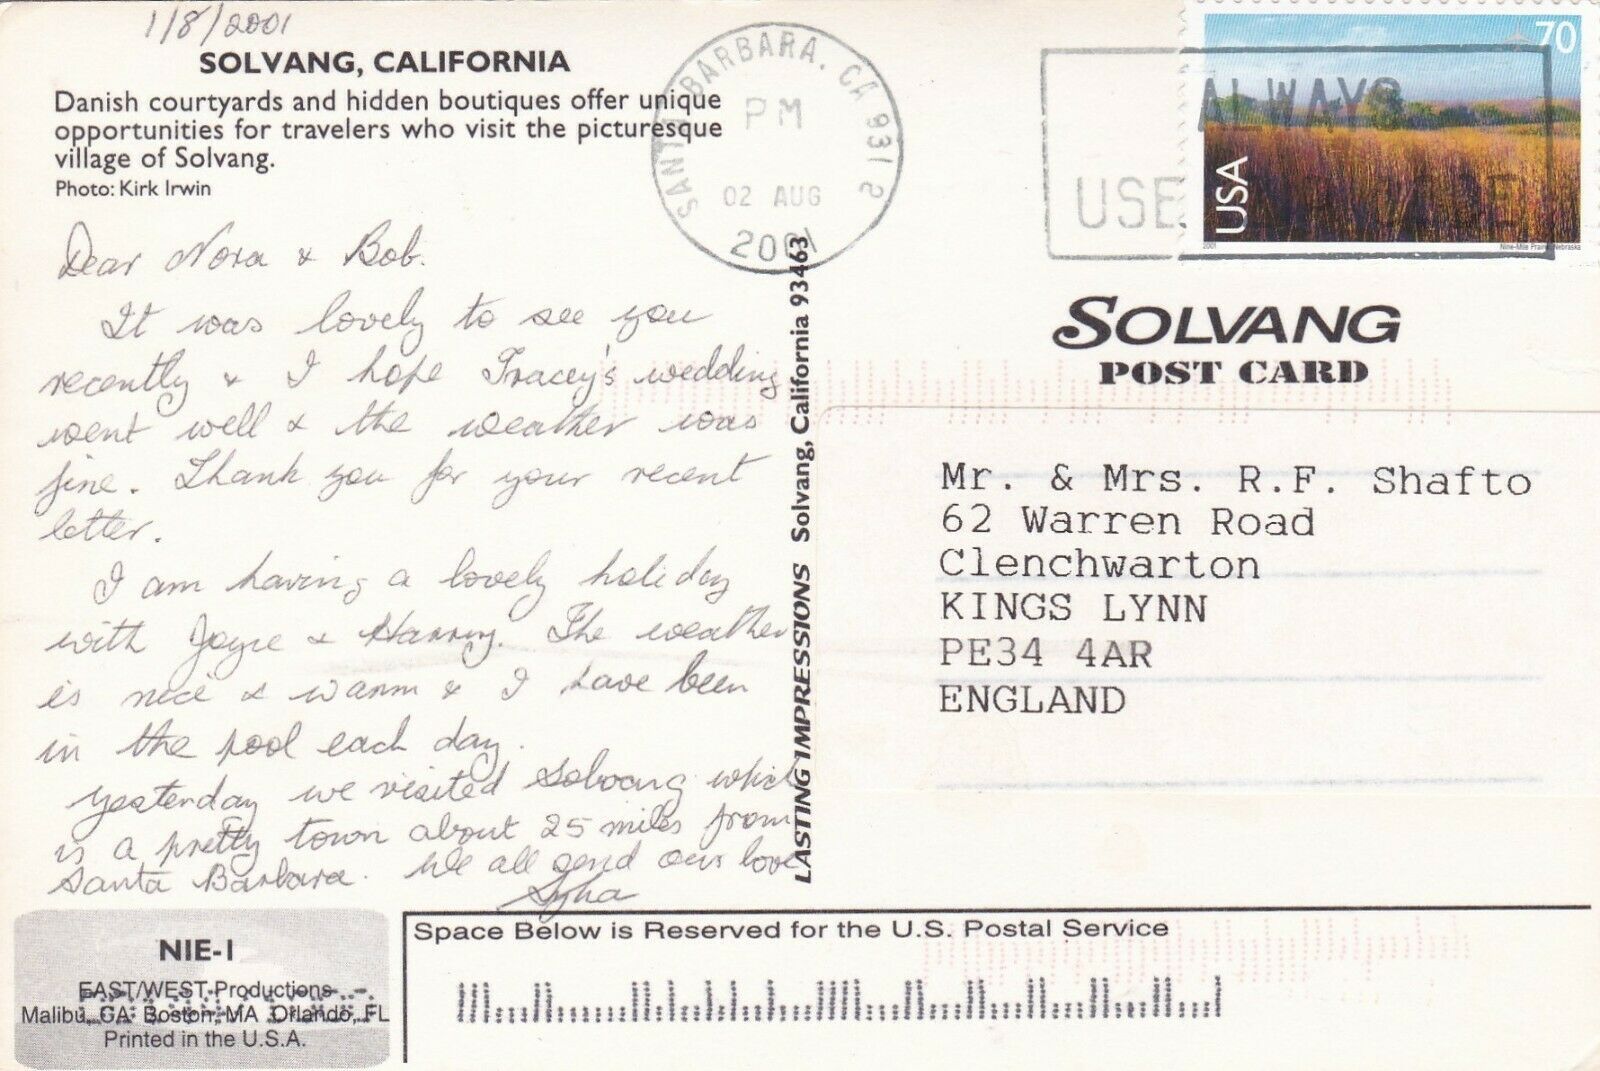 1/8/2001
SOLVANG, CALIFORNIA
Danish courtyards and hidden boutiques offer unique
opportunities for travelers who visit the picturesque
village of Solvang.
Photo: Kirk Irwin
Dear Nora & Bob.
It was lovely to see you
recently & I hope Tracey's wedding
went well & the weather was
fine. Thank you for your recent
letter.
I am having a lovely holiday
with Joyce & Harry. The weather
is nice & warm & I have been
in the pool each day.
Yesterday we visited Solvang which
is a pretty town about 25 miles from
Santa Barbara. We all send our love
NIE-1
EAST/WEST Productions
Malibu, CA Boston, MA Orlando, FL
Printed in the U.S.A.
SANTA BARBARA, CA 9312
PM
02 AUG
2001
LASTING IMPRESSIONS Solvang, California 93463
ALWAYS
USE
70
USA
2001
Nine-Mile Prairie, Nebraska
SOLVANG
POST CARD
Mr. & Mrs. R.F. Shafto
62 Warren Road
Clenchwarton
KINGS LYNN
PE34 4AR
ENGLAND
Space Below is Reserved for the U.S. Postal Service